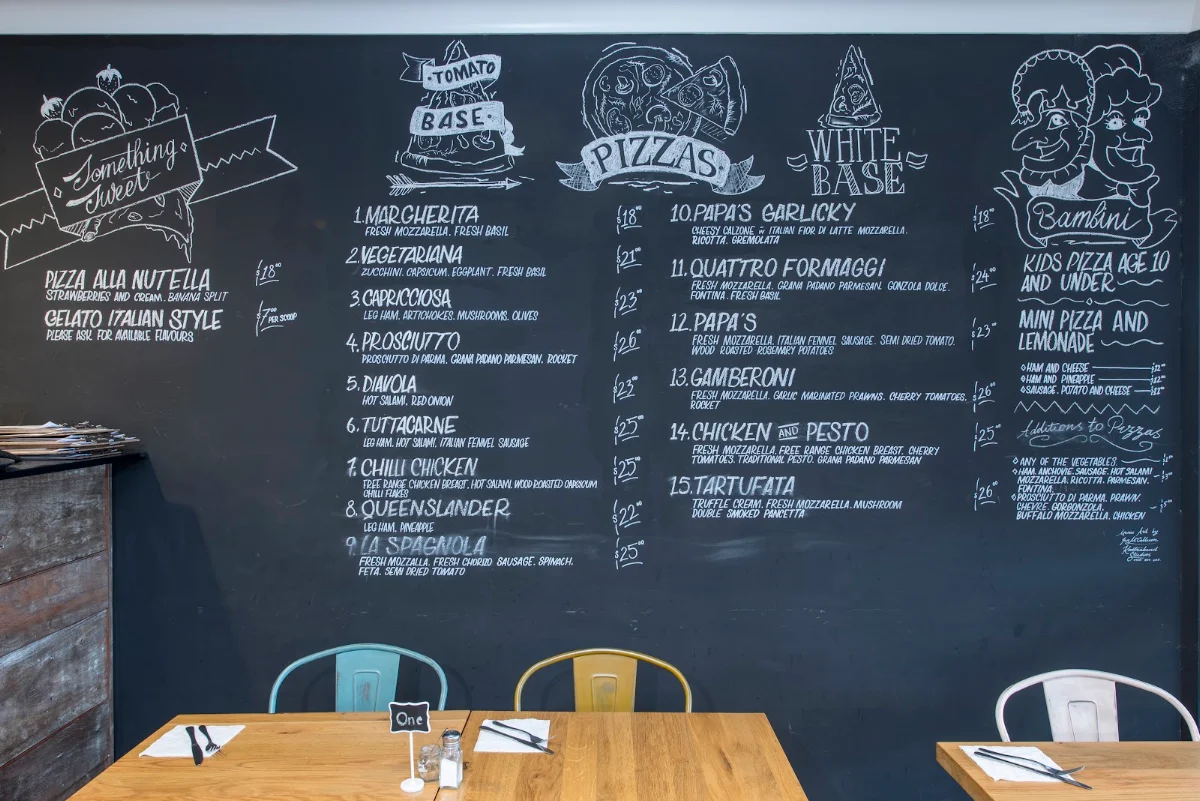 Something
Sweet
PIZZA ALLA NUTELLA $18.00
STRAWBERRIES AND CREAM. BANANA SPLIT
GELATO ITALIAN STYLE $7.00 PER SCOOP
PLEASE ASK FOR AVAILABLE FLAVOURS
TOMATO
BASE
PIZZAS
WHITE
BASE
1. MARGHERITA $18.00
FRESH MOZZARELLA, FRESH BASIL
2. VEGETARIANA $21.00
ZUCCHINI. CAPSICUM. EGGPLANT. FRESH BASIL
3. CAPRICCIOSA $23.00
LEG HAM. ARTICHOKES. MUSHROOMS. OLIVES
4. PROSCIUTTO $26.00
PROSCIUTTO DI PARMA. GRANA PADANO PARMESAN. ROCKET
5. DIAVOLA $23.00
HOT SALAMI. RED ONION
6. TUTTACARNE $25.00
LEG HAM. HOT SALAMI. ITALIAN FENNEL SAUSAGE
7. CHILLI CHICKEN $25.00
FREE RANGE CHICKEN BREAST. HOT SALAMI. WOOD ROASTED CAPSICUM
CHILLI FLAKES
8. QUEENSLANDER $22.00
LEG HAM. PINEAPPLE
9. LA SPAGNOLA $25.00
FRESH MOZZALLA. FRESH CHORIZO SAUSAGE. SPINACH.
FETA. SEMI DRIED TOMATO
10. PAPA'S GARLICKY $18.00
CHEESY CALZONE w ITALIAN FIOR DI LATTE MOZZARELLA.
RICOTTA. GREMOLATA
11. QUATTRO FORMAGGI $24.00
FRESH MOZZARELLA. GRANA PADANO PARMESAN. GONZOLA DOLCE.
FONTINA. FRESH BASIL
12. PAPA'S $23.00
FRESH MOZZARELLA. ITALIAN FENNEL SAUSAGE. SEMI DRIED TOMATO.
WOOD ROASTED ROSEMARY POTATOES
13. GAMBERONI $26.00
FRESH MOZZARELLA. GARLIC MARINATED PRAWNS. CHERRY TOMATOES.
ROCKET
14. CHICKEN AND PESTO $25.00
FRESH MOZZARELLA. FREE RANGE CHICKEN BREAST. CHERRY
TOMATOES. TRADITIONAL PESTO. GRANA PADANO PARMESAN
15. TARTUFATA $26.00
TRUFFLE CREAM. FRESH MOZZARELLA. MUSHROOM
DOUBLE SMOKED PANCETTA
Bambini
KIDS PIZZA AGE 10
AND UNDER
MINI PIZZA AND
LEMONADE
HAM AND CHEESE
HAM AND PINEAPPLE
SAUSAGE. POTATO AND CHEESE
Additions to Pizzas
ANY OF THE VEGETABLES
HAM. ANCHOVIE. SAUSAGE. HOT SALAMI
MOZZARELLA. RICOTTA. PARMESAN.
FONTINA.
PROSCIUTTO DI PARMA. PRAWN.
CHEVRE. GORGONZOLA.
BUFFALO MOZZARELLA. CHICKEN
One